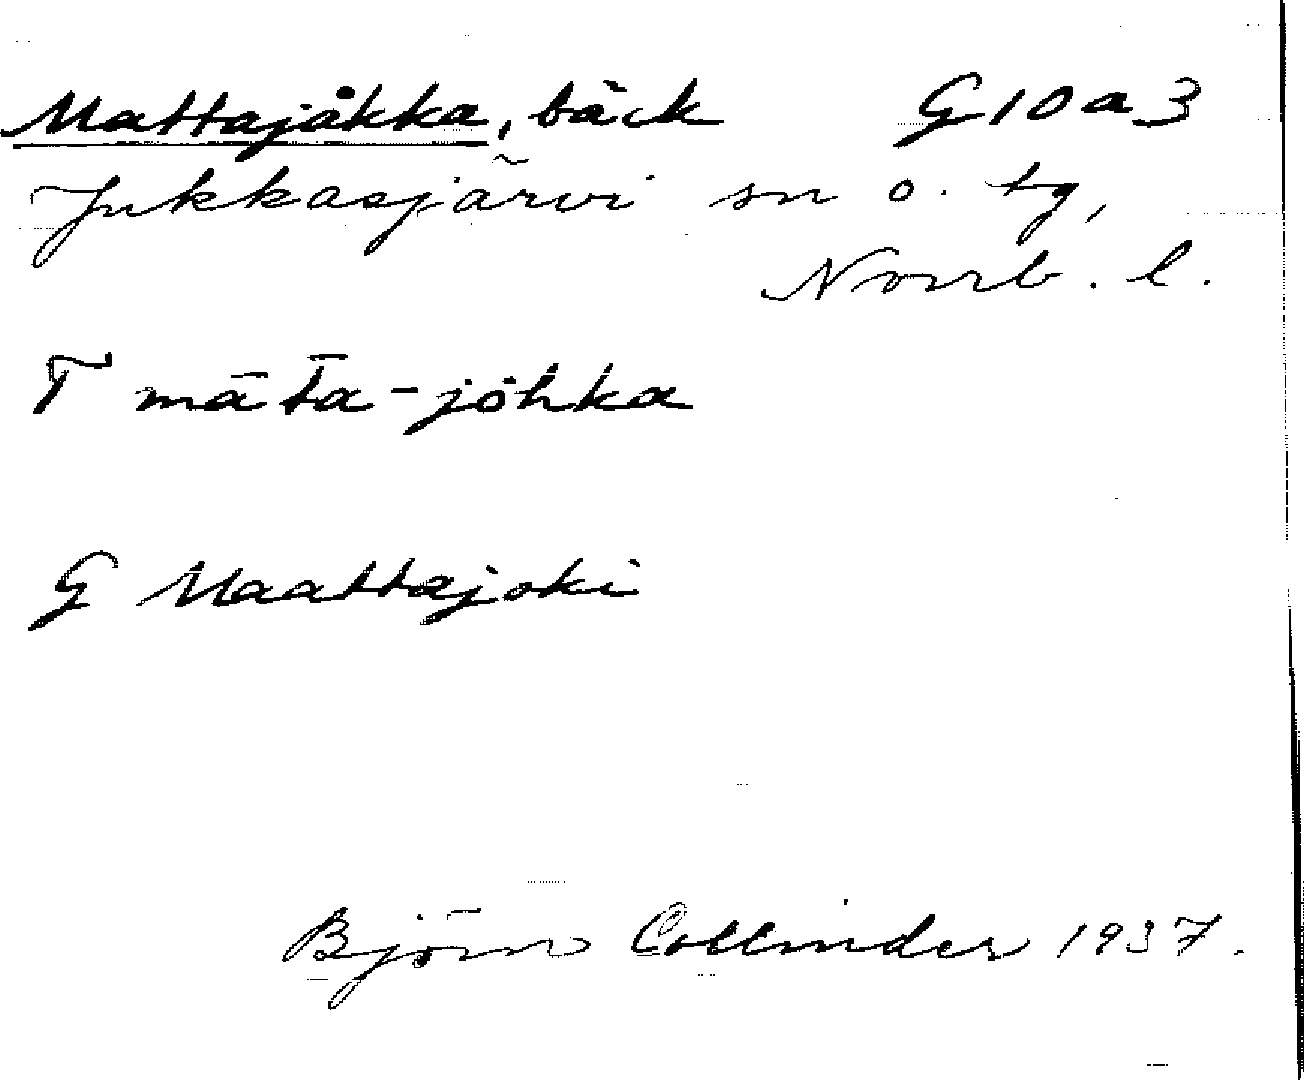 Mattajåkka, bäck G10a3
Jukkasjärvi sn o. tg,
Norrb. l.
T māt̄a-jo̊hka
G Maattajoki
Björn Collinder 1937.